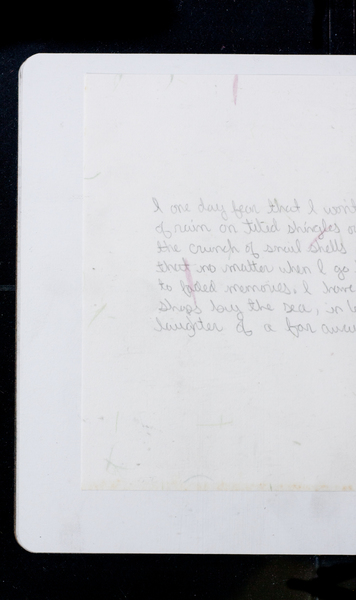 I one day fear that I won't
of rain on tilted shingles or
the crunch of snail shells
that no matter when I go
to faded memories. I have
shops by the sea, in
laughter of a far away